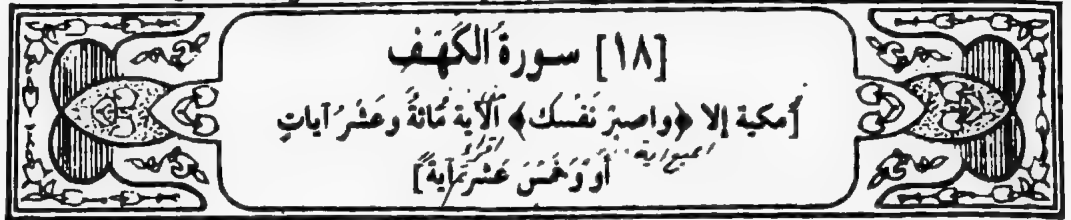 [١٨] سورة الكهف
[مكية إلا ﴿واصبر نفسك﴾ الآية مائة وعشر آيات
أو وخمس عشرة آية]